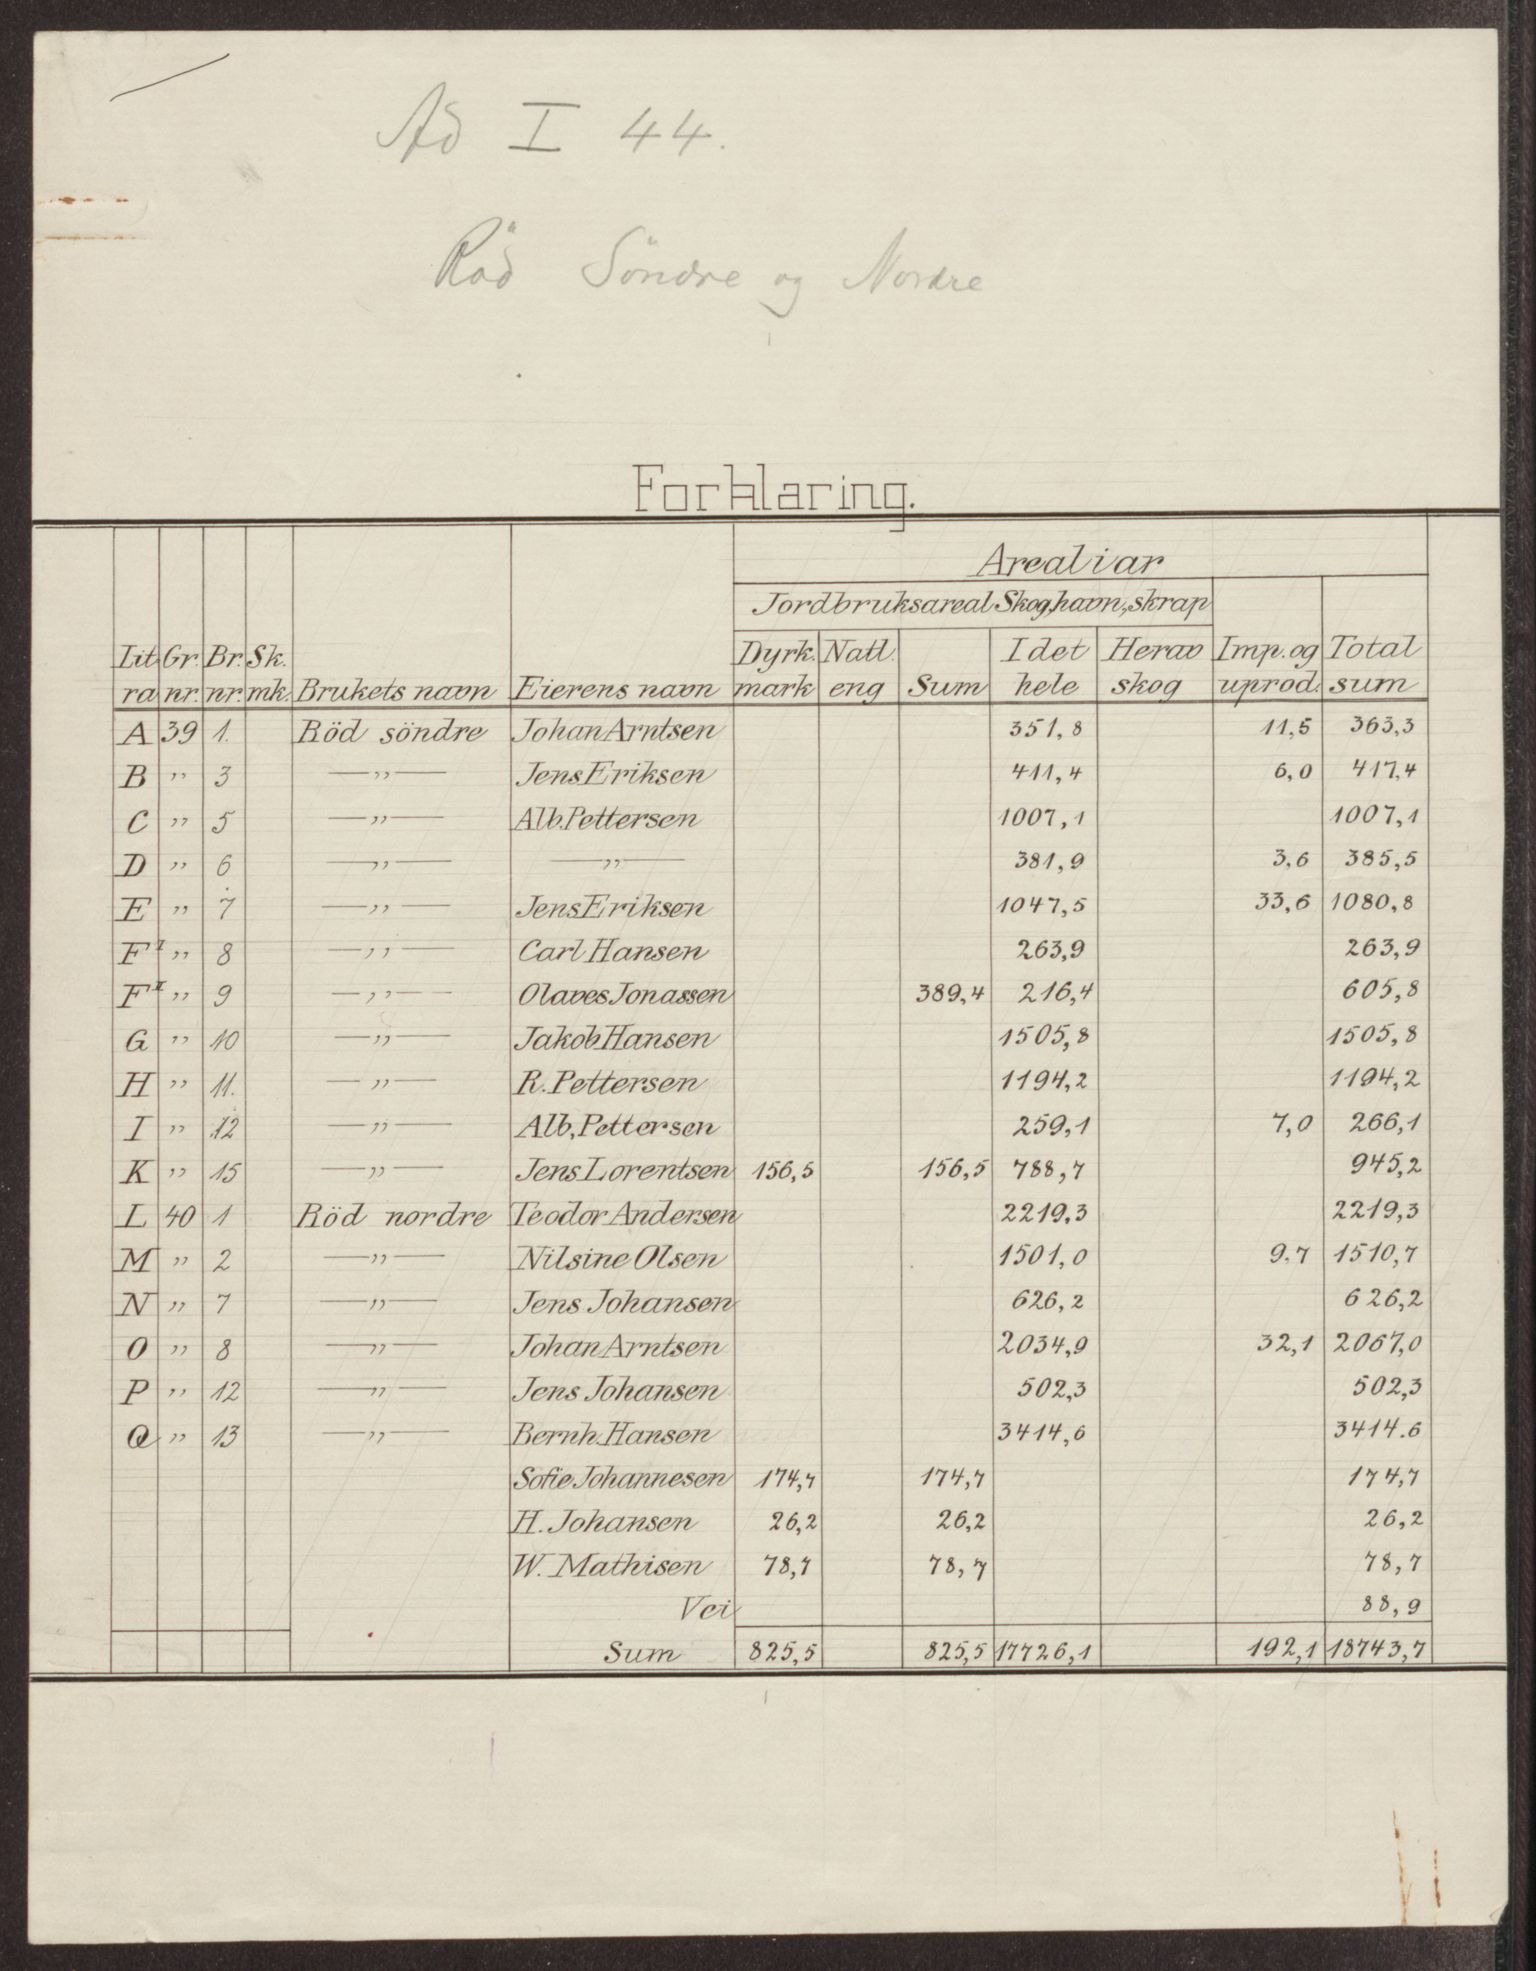 Ad I 44.
Röd Söndre og Nordre
Forklaring.
Areal i ar
Jordbruksareal Skog, havn, skrap
Lit. Gr. Br. Sk. Dyrk. Natl. I det Herav Imp. og Total
ra nr. nr. mk. Brukets navn Eierens navn mark eng Sum hele skog uprod. sum
A 39 1. Röd söndre Johan Arntsen 351,8 11,5 363,3
B " 3 —"— Jens Eriksen 411,4 6,0 417,4
C " 5 —"— Alb. Pettersen 1007,1 1007,1
D " 6 —"— —"— 381,9 3,6 385,5
E " 7 —"— Jens Eriksen 1047,5 33,6 1080,8
F I " 8 —"— Carl Hansen 263,9 263,9
F II " 9 —"— Olaves Jonassen 389,4 216,4 605,8
G " 10 —"— Jakob Hansen 1505,8 1505,8
H " 11. —"— R. Pettersen 1194,2 1194,2
I " 12 —"— Alb, Pettersen 259,1 7,0 266,1
K " 15 —"— Jens Lorentsen 156,5 156,5 788,7 945,2
L 40 1 Röd nordre Teodor Andersen 2219,3 2219,3
M " 2 —"— Nilsine Olsen 1501,0 9,7 1510,7
N " 7 —"— Jens Johansen 626,2 626,2
O " 8 —"— Johan Arntsen 2034,9 32,1 2067,0
P " 12 —"— Jens Johansen 502,3 502,3
Q " 13 —"— Bernh. Hansen 3414,6 3414.6
Sofie Johannesen 174,7 174,7 174,7
H. Johansen 26,2 26,2 26,2
W. Mathisen 78,7 78,7 78,7
Vei 88,9
Sum 825,5 825,5 17726,1 192,1 18743,7